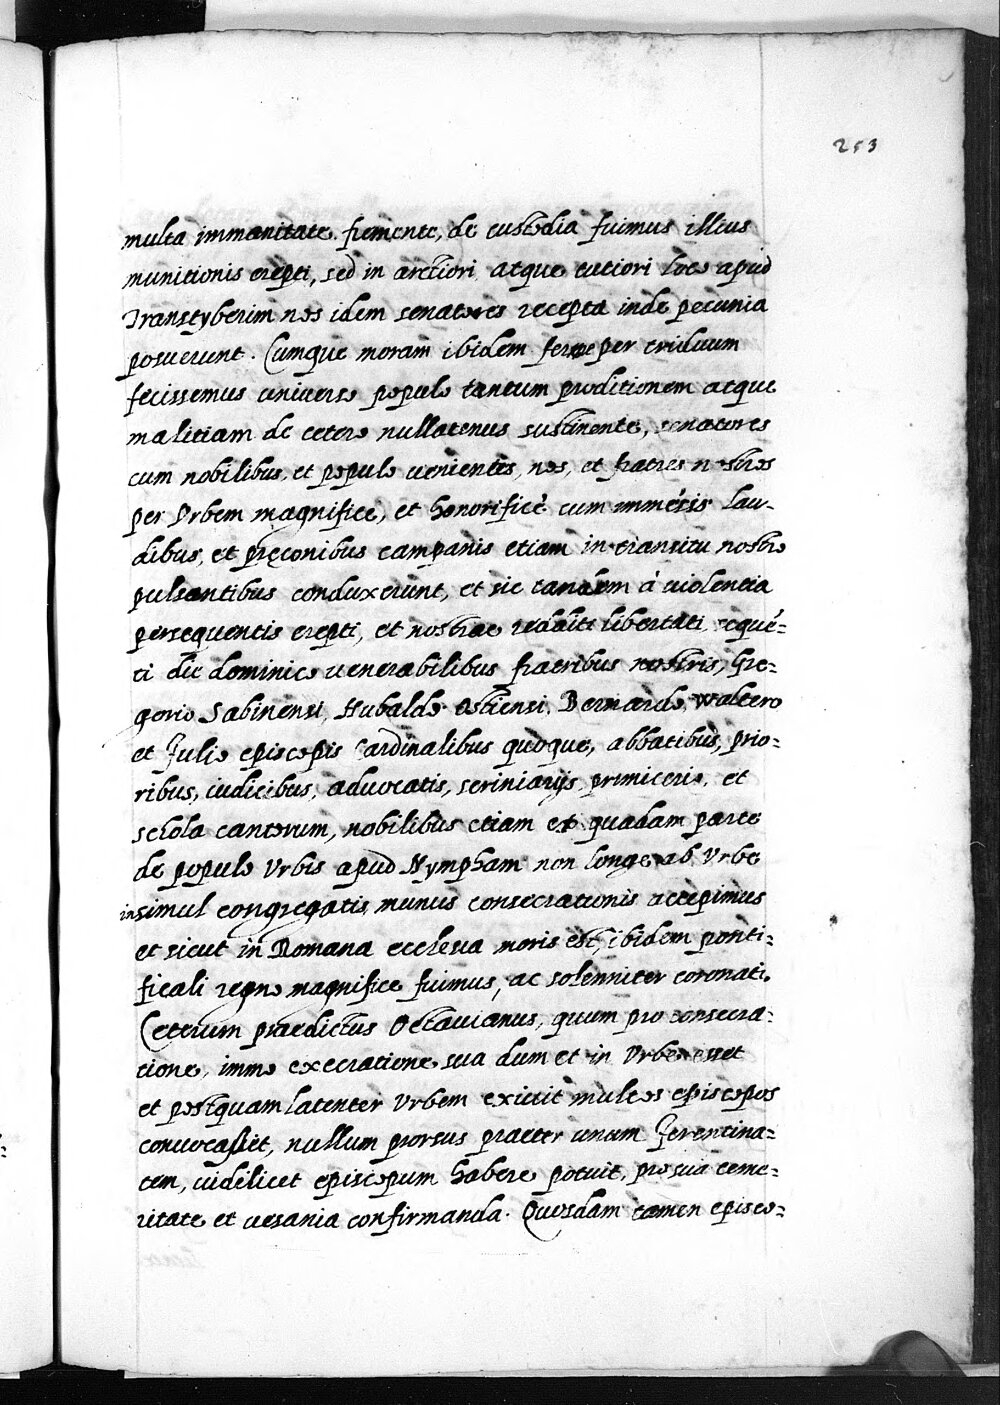 253
multa immanitate fremente, de custodia fuimus illius
munitionis erepti, sed in arctiori atque tutiori loco apud
Transtyberim nos idem senatores recepta inde pecunia
posuerunt. Cumque moram ibidem ferme per triduum
fecissemus universo populo tantum proditionem atque
malitiam de cetero nullatenus sustinente, senatores
cum nobilibus, et populo uenientes, nos, et fratres nostros
per Urbem magnifice, et honorificè cum immēsis lau-
dibus, et pręconibus campanis etiam in transitu nostro
pulsantibus conduxerunt, et sic tandem à uiolentia
persequentis erepti, et nostrae redditi libertati sequē=
ti die dominico uenerabilibus fratribus nostris, Gre=
gorio Sabinensi, Hubaldo Ostiensi, Bernardo, Waltero
et Julio episcopis Cardinalibus quoque, abbatibus, prio=
ribus, iudicibus, aduocatis, scriniarijs, primicerio, et
schola cantorum, nobilibus etiam et quadam parte
de populo Urbis apud Nympham non longe ab Urbe
insimul congregatis munus consecrationis accepimus
et sicut in Romana ecclesia moris est, ibidem ponti=
ficali regno magnifice fuimus, ac solenniter coronati.
Ceterum praedictus Octauianus, quum pro consecra=
tione, immo execratione sua dum et in Urbe esset
et postquam latenter Urbem exiuit multos episcopos
conuocasset, nullum prorsus praeter unum Ferentina=
tem, uidelicet episcopum habere potuit, pro sua teme=
ritate et uesania confirmanda. Quosdam tamen episco=